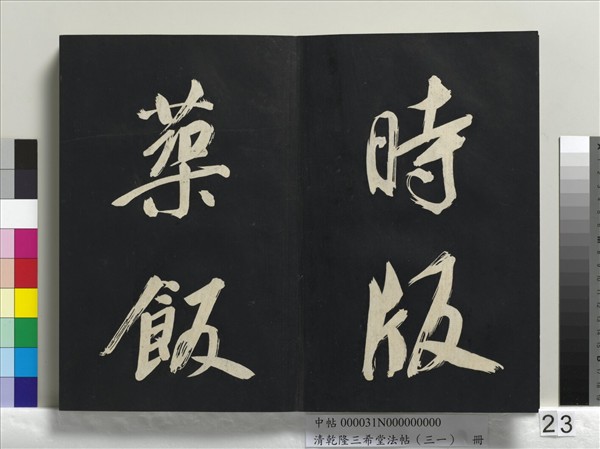 時版
築飯
中帖 000031N000000000
清乾隆三希堂法帖（三一） 冊
23